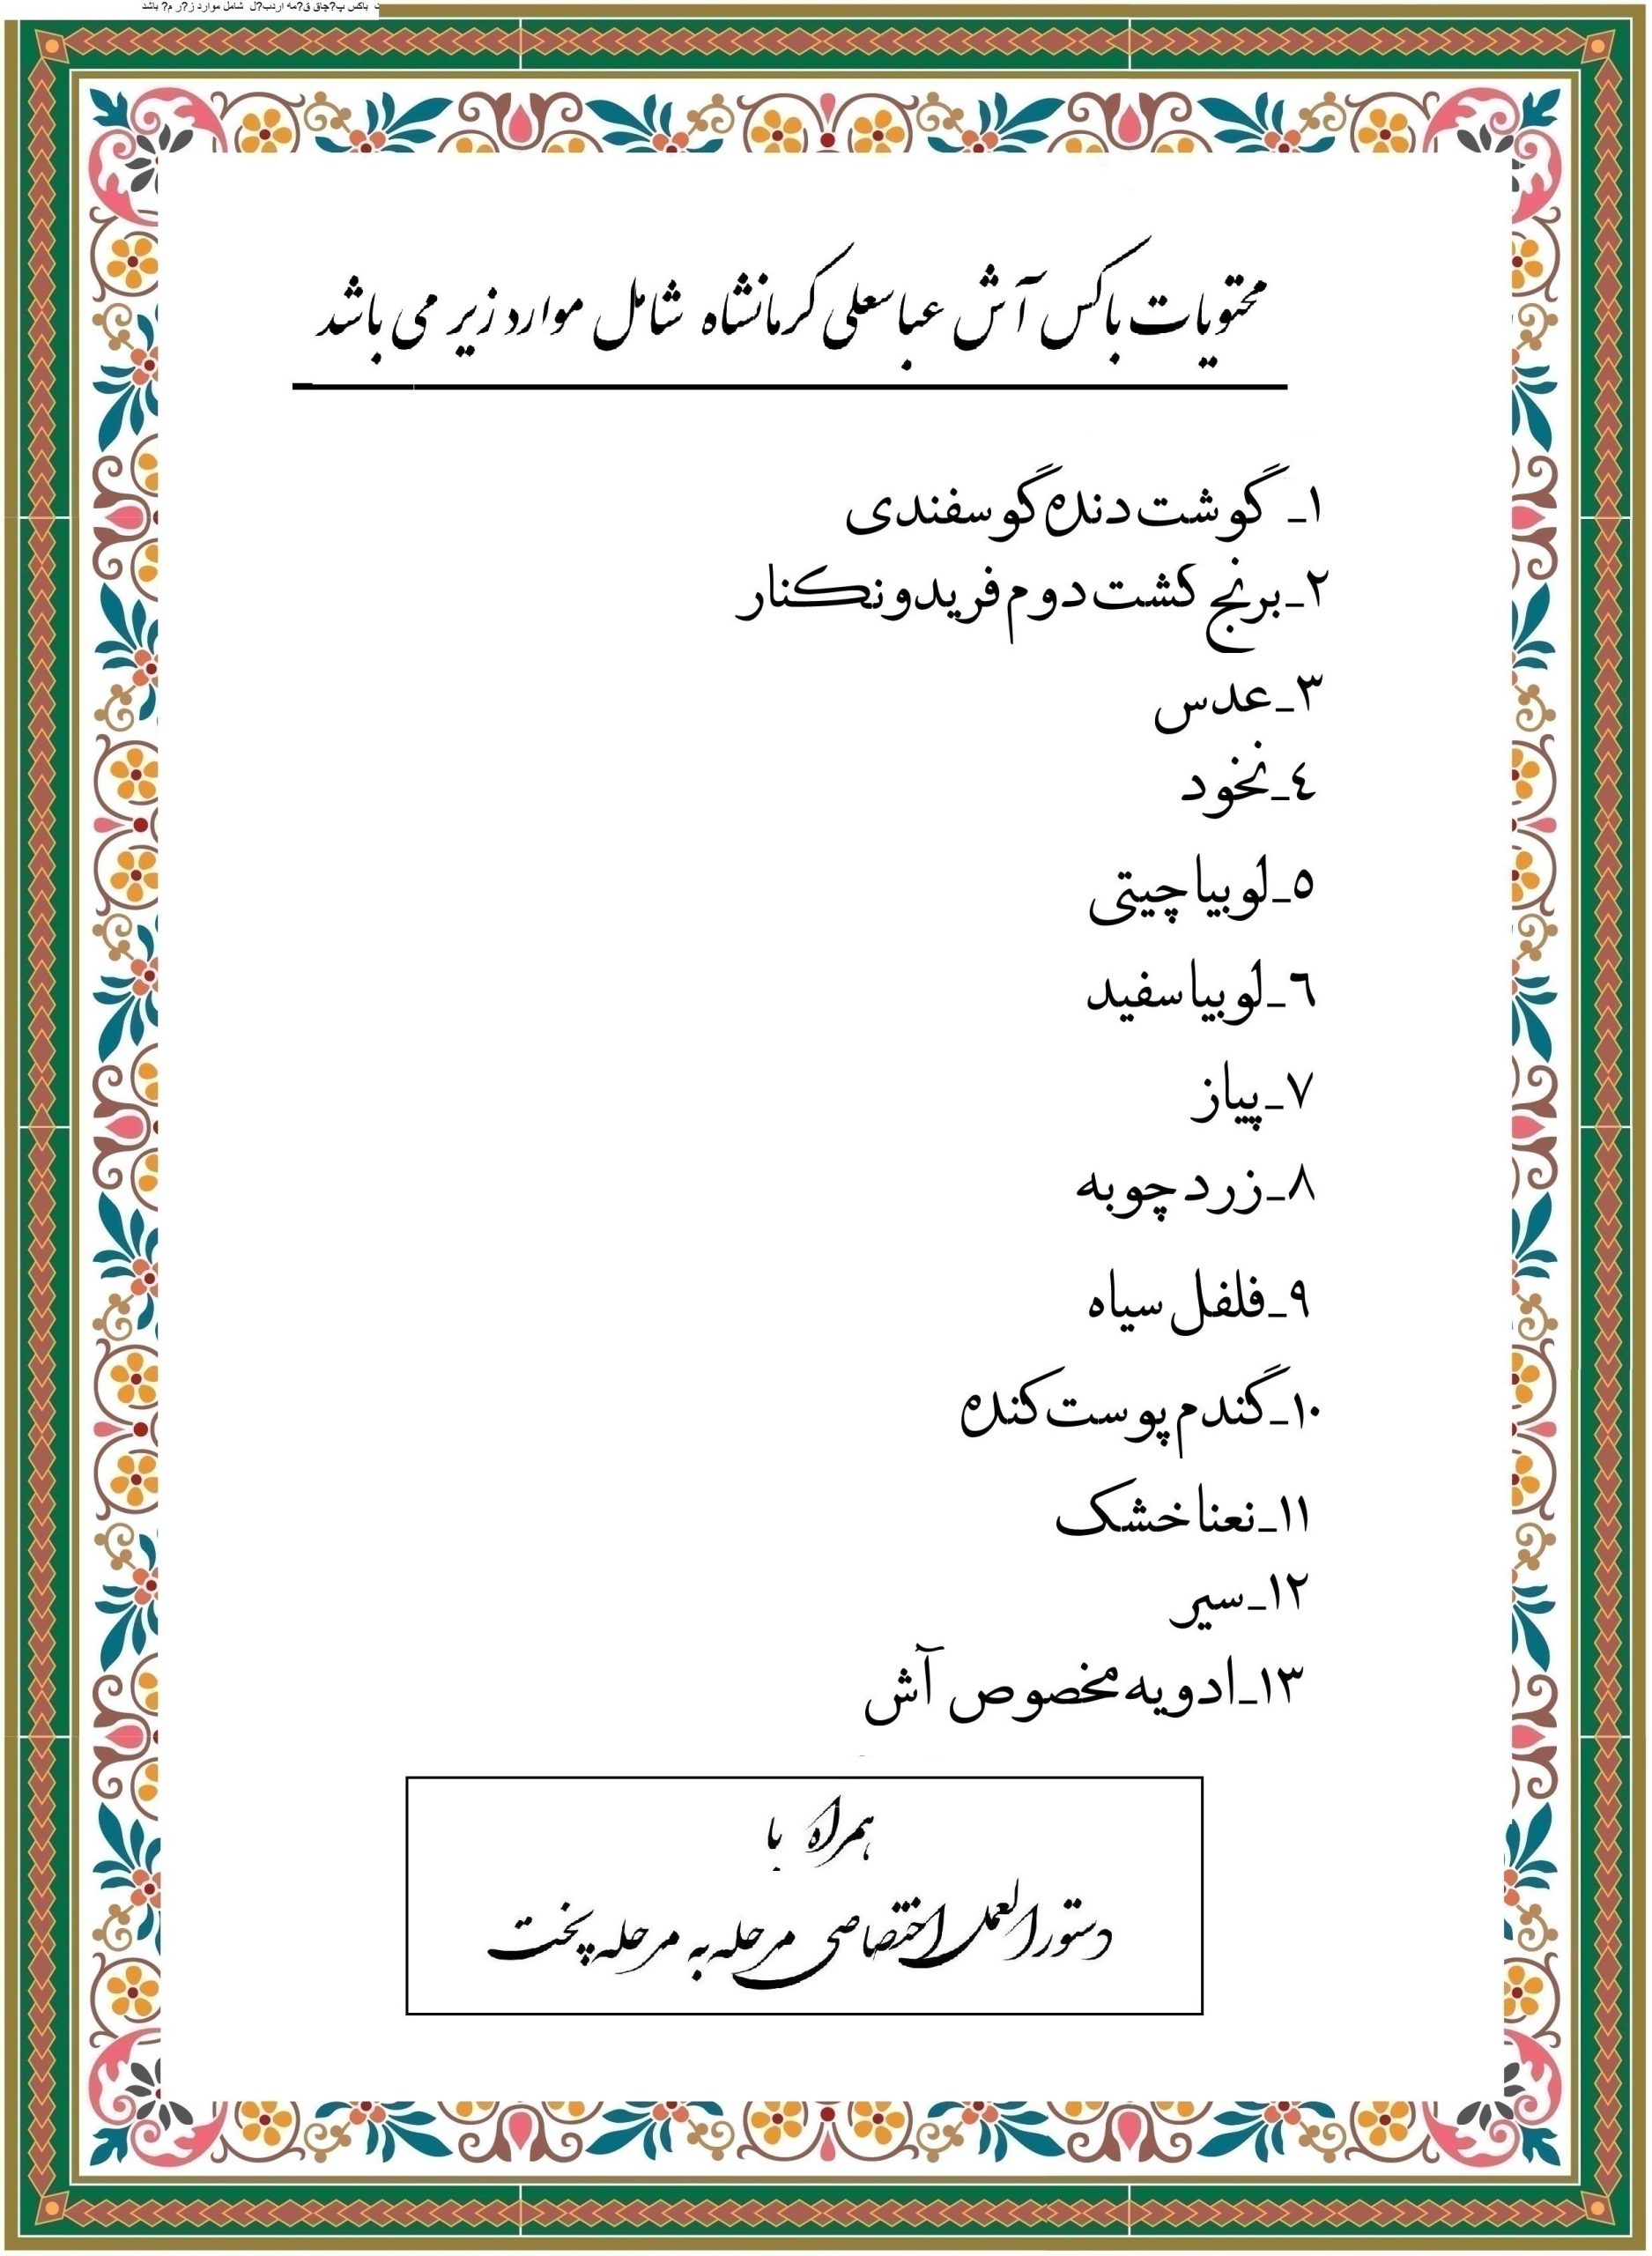 باکس پ?چاق ق?مه اردب?ل شامل موارد ز?ر م? باشد
محتویات باکس آش عباسعلی کرمانشاه شامل موارد زیر می باشد
١_ گوشت دنده گوسفندی
٢_برنج کشت دوم فریدونکنار
٣_عدس
٤_نخود
٥_لوبیا چیتی
٦_لوبیا سفید
٧_پیاز
٨_زردچوبه
٩_فلفل سیاه
١٠_گندم پوست کنده
١١_نعنا خشک
١٢_سیر
١٣_ادویه مخصوص آش
همراه با
دستورالعمل اختصاصی مرحله به مرحله پخت